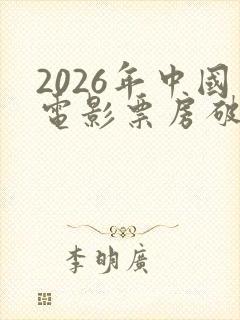 2026年中国
電影票房破
李明廣